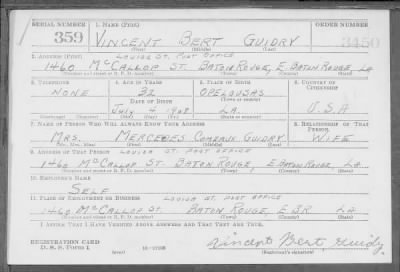 SERIAL NUMBER 1. NAME (Print) ORDER NUMBER
359 VINCENT BERT GUIDRY 3450
(First) (Middle) (Last)
2. ADDRESS (Print) LOUISA ST. POST OFFICE
1460 McCALLOP ST. BATON ROUGE, E. BATON ROUGE, LA
(Number and street or R. F. D. number) (Town) (County) (State)
3. TELEPHONE 4. AGE IN YEARS 5. PLACE OF BIRTH 6. COUNTRY OF CITIZENSHIP
NONE 32 OPELOUSAS
DATE OF BIRTH (Town or county)
July 4 1908 LA. U.S.A
(Mo.) (Day) (Yr.) (State or country)
7. NAME OF PERSON WHO WILL ALWAYS KNOW YOUR ADDRESS 8. RELATIONSHIP OF THAT PERSON
MRS. MERCEDES COMEAUX GUIDRY WIFE
(Mr., Mrs., Miss) (First) (Middle) (Last)
9. ADDRESS OF THAT PERSON LOUISA ST. POST OFFICE
1460 McCALLOP ST. BATON ROUGE, E BATON ROUGE, LA.
(Number and street or R. F. D. number) (Town) (County) (State)
10. EMPLOYER'S NAME
SELF
11. PLACE OF EMPLOYMENT OR BUSINESS LOUISA ST. POST OFFICE
1460 McCALLOP ST. BATON ROUGE, E BR LA
(Number and street or R. F. D. number) (Town) (County) (State)
I AFFIRM THAT I HAVE VERIFIED ABOVE ANSWERS AND THAT THEY ARE TRUE.
REGISTRATION CARD
D. S. S. FORM 1 (over) Vincent Bert Guidry
(Registrant's signature)